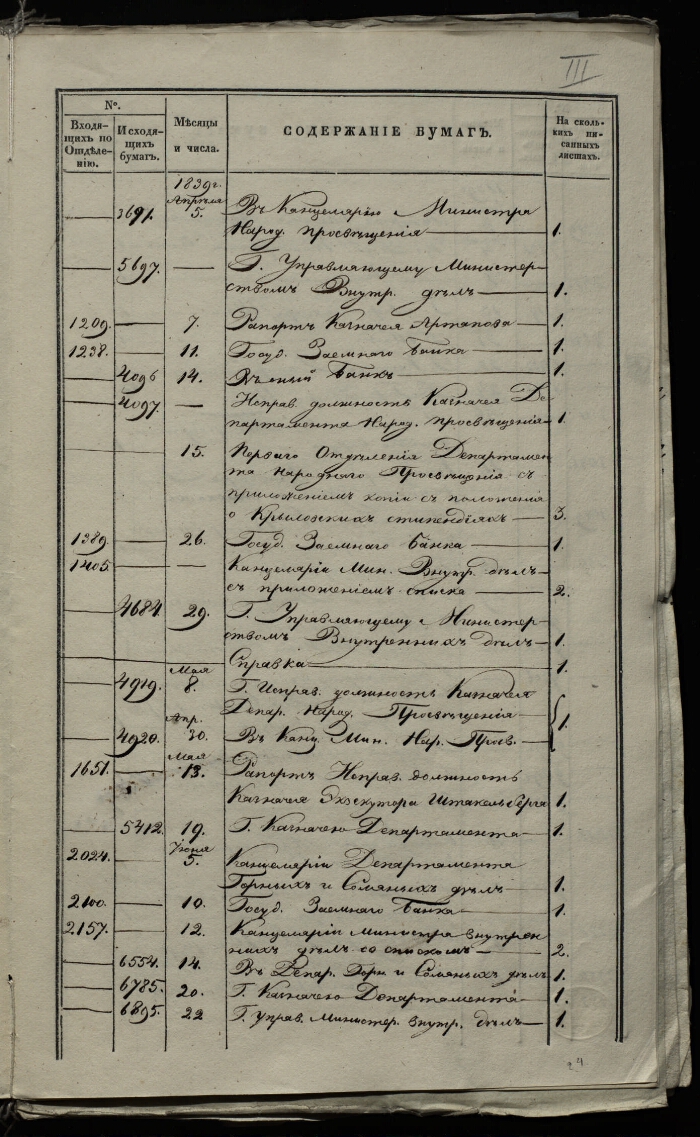 III
№.
Входя-
щихъ по
Отдѣле-
нію.
Исходя-
щихъ
бумагъ.
Мѣсяцы
и числа.
СОДЕРЖАНІЕ БУМАГЪ.
На сколь-
кихъ пи-
санныхъ
листахъ.
1839 г.
Апрѣля
3691. 5. Въ Канцелярію Министра
Народ. просвѣщенія 1.
5697. — Г. Управляющему Министер-
ствомъ Внутр. дѣлъ 1.
1209. — 7. Рапортъ Казначея Артапова 1.
1238. — 11. Госуд. Заемнаго Банка 1.
4096 14. Въ оный Банкъ 1.
4097. — Исправ. должность Казначея Де-
партамента Народ. просвѣщенія 1.
15. Перваго Отдѣленія Департамен-
та Народнаго Просвѣщенія съ
приложеніемъ копіи съ положенія
о Крыловскихъ стипендіяхъ 3.
1389. — 26. Госуд. Заемнаго Банка 1.
1405. — — Канцеляріи Мин. Внутр. дѣлъ
съ приложеніемъ списка 2.
4684. 29. Г. Управляющему Министер-
ствомъ Внутреннихъ дѣлъ 1.
Справка 1.
Мая
4919. 8. Г. Исправ. должность Казначея
Депар. Народ. Просвѣщенія
Апр.
4920. 30. Въ Канц. Мин. Нар. Просв. 1.
Мая
1651. — 13. Рапортъ Исправ. должность
Казначея Экзекутора Штакельберга 1.
5412. 19. Г. Казначею Департамента 1.
Іюня
2024. — 5. Канцеляріи Департамента
Горныхъ и Соляныхъ дѣлъ 1.
2100. — 10. Госуд. Заемнаго Банка 1.
2157. — 12. Канцеляріи Министра внутрен-
нихъ дѣлъ со спискомъ 2.
6554. 14. Въ Депар. Горн. и Соляныхъ дѣлъ 1.
6785. 20. Г. Казначею Департамента 1.
6895. 22 Г. Управ. Министер. внутр. дѣлъ 1.
24